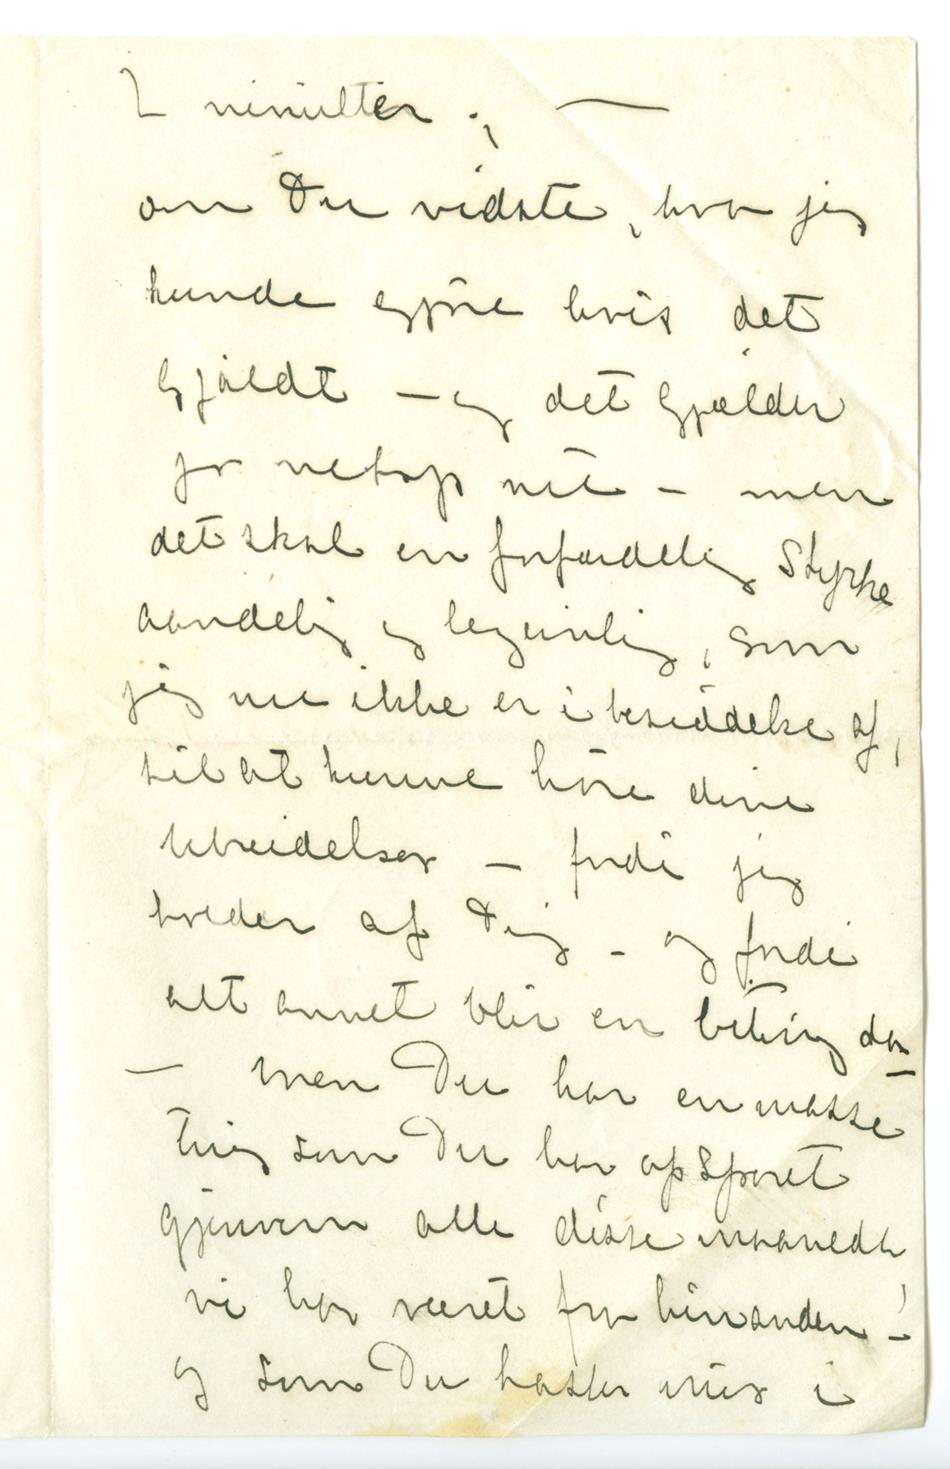 2 minutter ; —
om Du vidste, hva jeg
kunde gjøre hvis det
gjaldt — og det gjælder
jo netop nu — men
det skal en forfærdelig Styrke
aandelig og legemlig, som
jeg nu ikke er i besiddelse af,
til at kunne høre dine
bebreidelser — fordi jeg
holder af Dig — og fordi
alt annet blir en liting da
— men Du har en masse
ting som Du har opsparet
gjennem alle disse maaneder
vi har været fra hinanden —!
og som Du kaster mig i